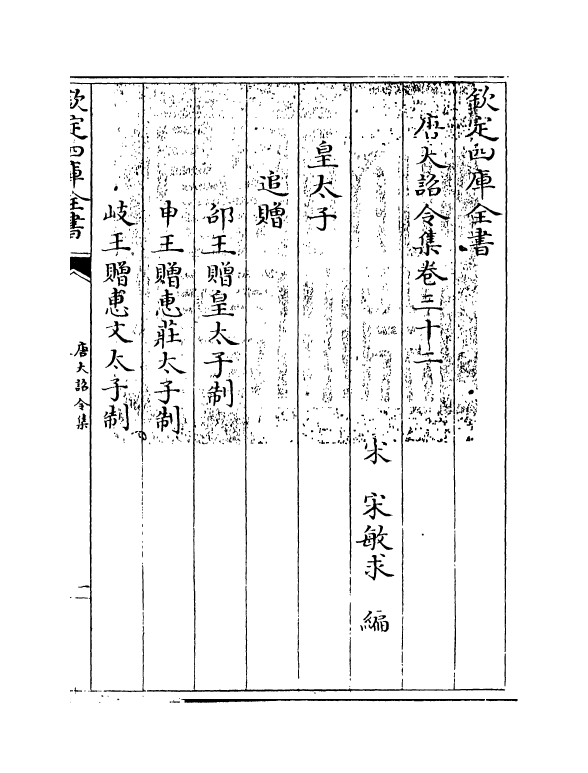 欽定四庫全書
唐大詔令集卷三十二
宋 宋敏求 編
皇太子
追贈
邠王贈皇太子制
申王贈恵莊太子制
岐王贈恵文太子制
欽定四庫全書
唐大詔令集
一